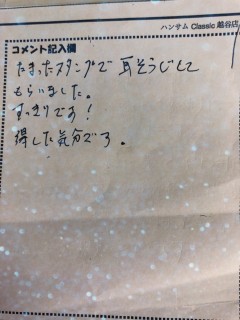 ハンサム Classic 越谷店
コメント記入欄
たまったスタンプで 耳そうじして
もらいました。
すっきりです!
得した気分です。